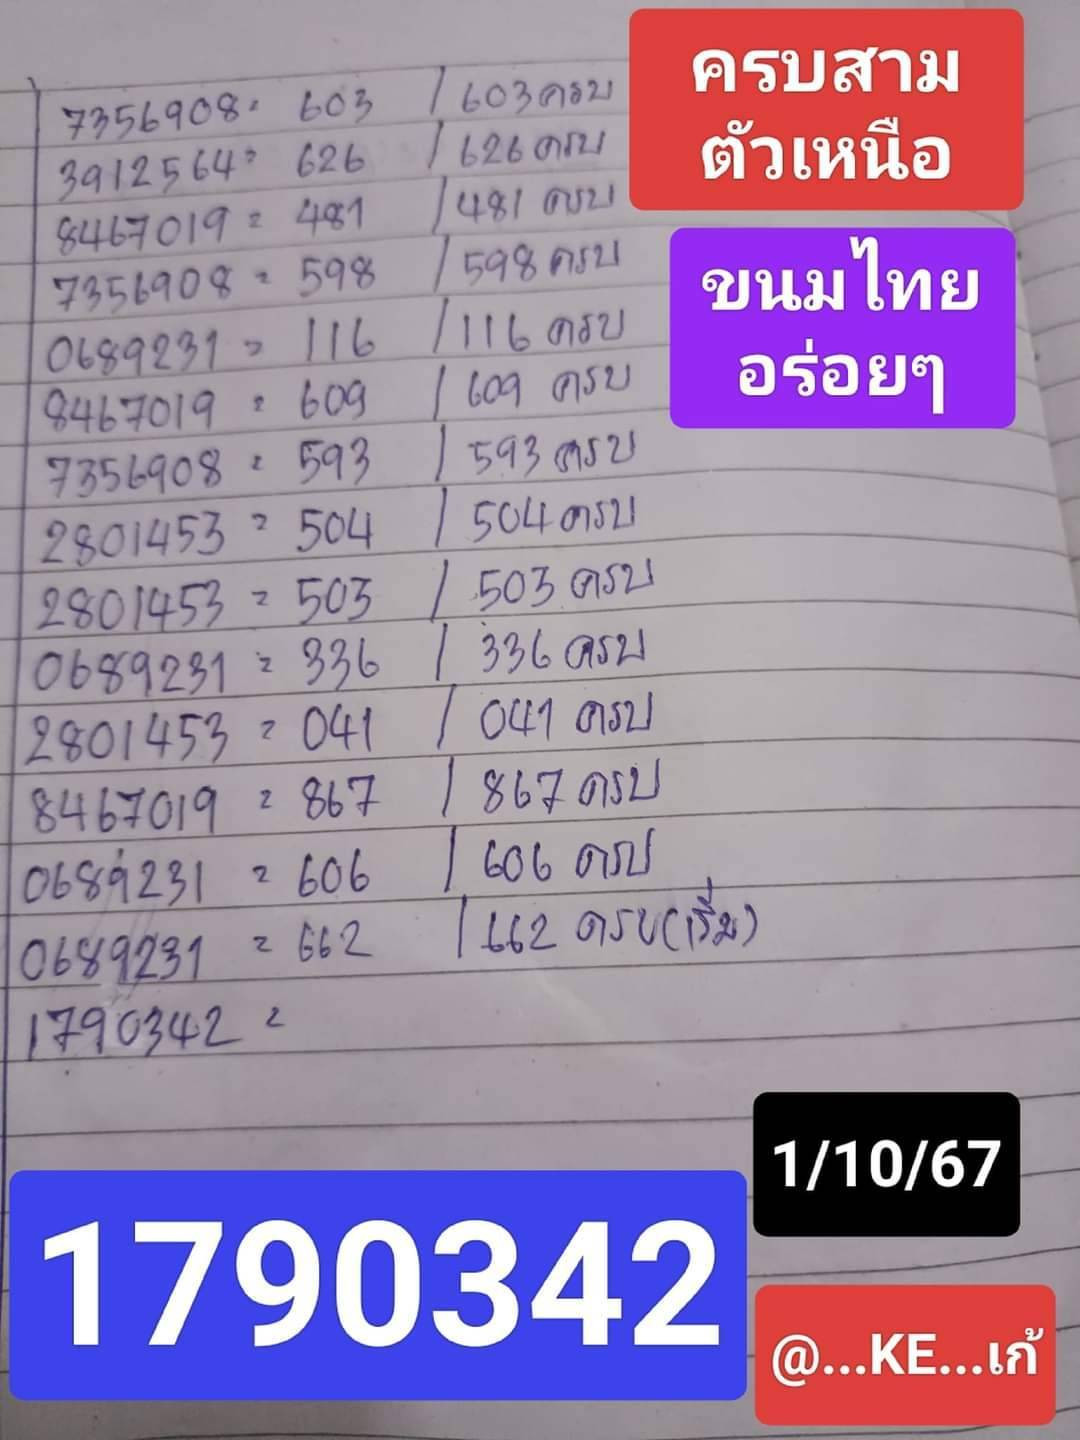 ครบสาม
ตัวเหนือ
ขนมไทย
อร่อยๆ
7356908 = 603 / 603 ครบ
3912564 = 626 / 626 ครบ
8467019 = 481 / 481 ครบ
7356908 = 598 / 598 ครบ
0689231 = 116 / 116 ครบ
8467019 = 609 / 609 ครบ
7356908 = 593 / 593 ครบ
2801453 = 504 / 504 ครบ
2801453 = 503 / 503 ครบ
0689231 = 336 / 336 ครบ
2801453 = 041 / 041 ครบ
8467019 = 867 / 867 ครบ
0689231 = 606 / 606 ครบ
0689231 = 662 / 662 ครบ(เริ่ม)
1790342 =
1/10/67
1790342
@...KE...เก้